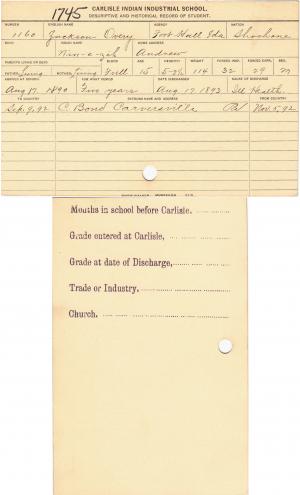 1745
CARLISLE INDIAN INDUSTRIAL SCHOOL.
DESCRIPTIVE AND HISTORICAL RECORD OF STUDENT.
NUMBER ENGLISH NAME AGENCY NATION
1160 Jackson Overy Fort Hall Ida Shoshone
BAND INDIAN NAME HOME ADDRESS
Andrew
PARENTS LIVING OR DEAD BLOOD AGE HEIGHT WEIGHT FORCED INSP. FORCED EXPR. SEX
FATHER Living MOTHER Living Full 15 114 32 29 M
ARRIVED AT SCHOOL FOR WHAT PERIOD DATE DISCHARGED CAUSE OF DISCHARGE
Aug 17, 1890 Five years Aug 17, 1893 Ill Health
TO COUNTRY PATRONS NAME AND ADDRESS FROM COUNTRY
Sep. 9, 92 C. Bond Carversville Pa Nov. 5, 92
Months in school before Carlisle.
Grade entered at Carlisle,
Grade at date of Discharge,
Trade or Industry.
Church.